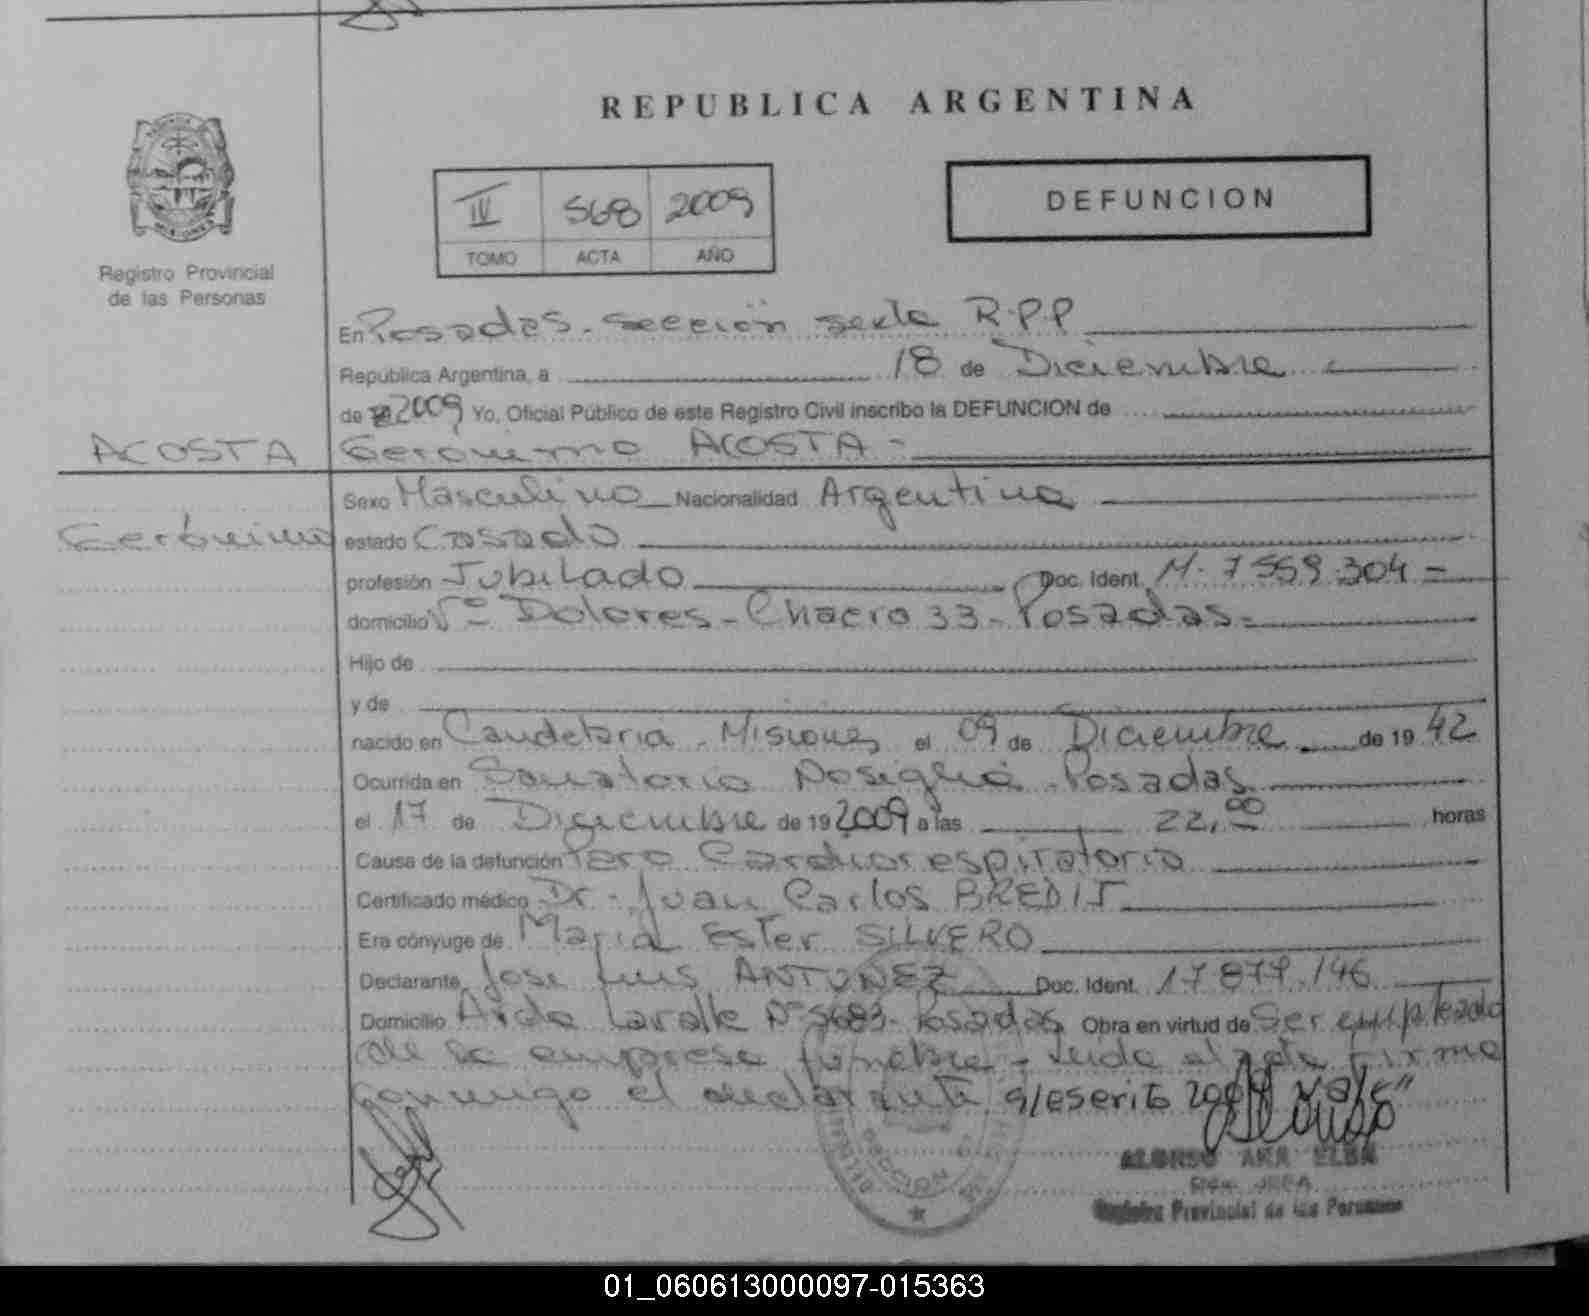 REPUBLICA ARGENTINA
IV 568 2009
TOMO ACTA AÑO
DEFUNCION
Registro Provincial
de las Personas
En Posadas - sección sexta R.P.P
República Argentina, a 18 de Diciembre
de 2009 Yo, Oficial Público de este Registro Civil inscribo la DEFUNCION de
ACOSTA
Gerónimo ACOSTA -
Sexo Masculino Nacionalidad Argentina
Gerónimo
estado Casado
profesión Jubilado Doc. Ident. M. 7559.304 -
domicilio Vº Dolores - Chacra 33 - Posadas -
Hijo de
y de
nacido en Candelaria - Misiones el 09 de Diciembre de 1942
Ocurrida en Sanatorio Nosiglia - Posadas
el 17 de Diciembre de 19 2009 a las 22,00 horas
Causa de la defunción Paro Cardiorespiratorio
Certificado médico Dr. Juan Carlos BREDIT
Era cónyuge de Maria Ester SILVERO
Declarante Jose Luis ANTUNEZ Doc. Ident. 17.877.146
Domicilio Avda Lavalle Nº 3683 - Posadas Obra en virtud de Ser empleado
de la empresa funebre - Leida el acta firma
conmigo el declarante s/escrito 2009 "Vale"
SECCION
ALONSO ANA ELBA
Registro Provincial de las Personas
01_060613000097-015363